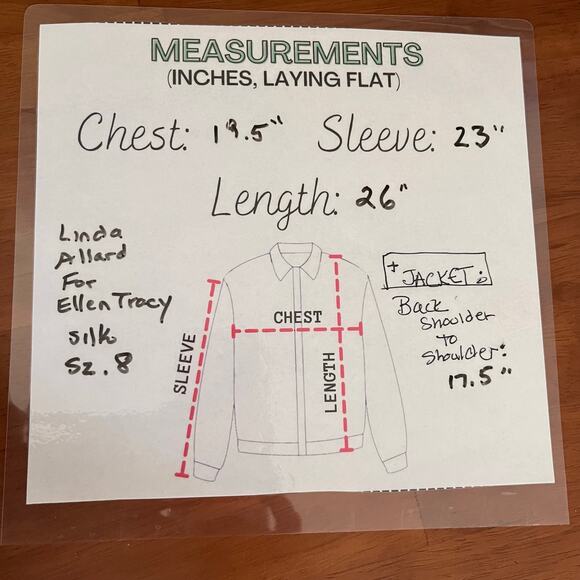 MEASUREMENTS
(INCHES, LAYING FLAT)
Chest: 19.5" Sleeve: 23"
Length: 26"
Linda
Allard
For
Ellen Tracy
silk
Sz. 8
CHEST
SLEEVE
LENGTH
+ JACKET:
Back
Shoulder
to
Shoulder:
17.5"